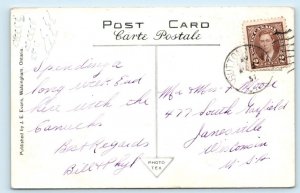 POST CARD
Carte Postale
Published by J. E. Evans, Walsingham, Ontario.
Spending a
long week End
here with the
Canucks
Best Regards
Bill
PHOTO
TEX
2
2
Mr & Mrs
477 South Garfield
Janesville
Wisconsin
U.S.A